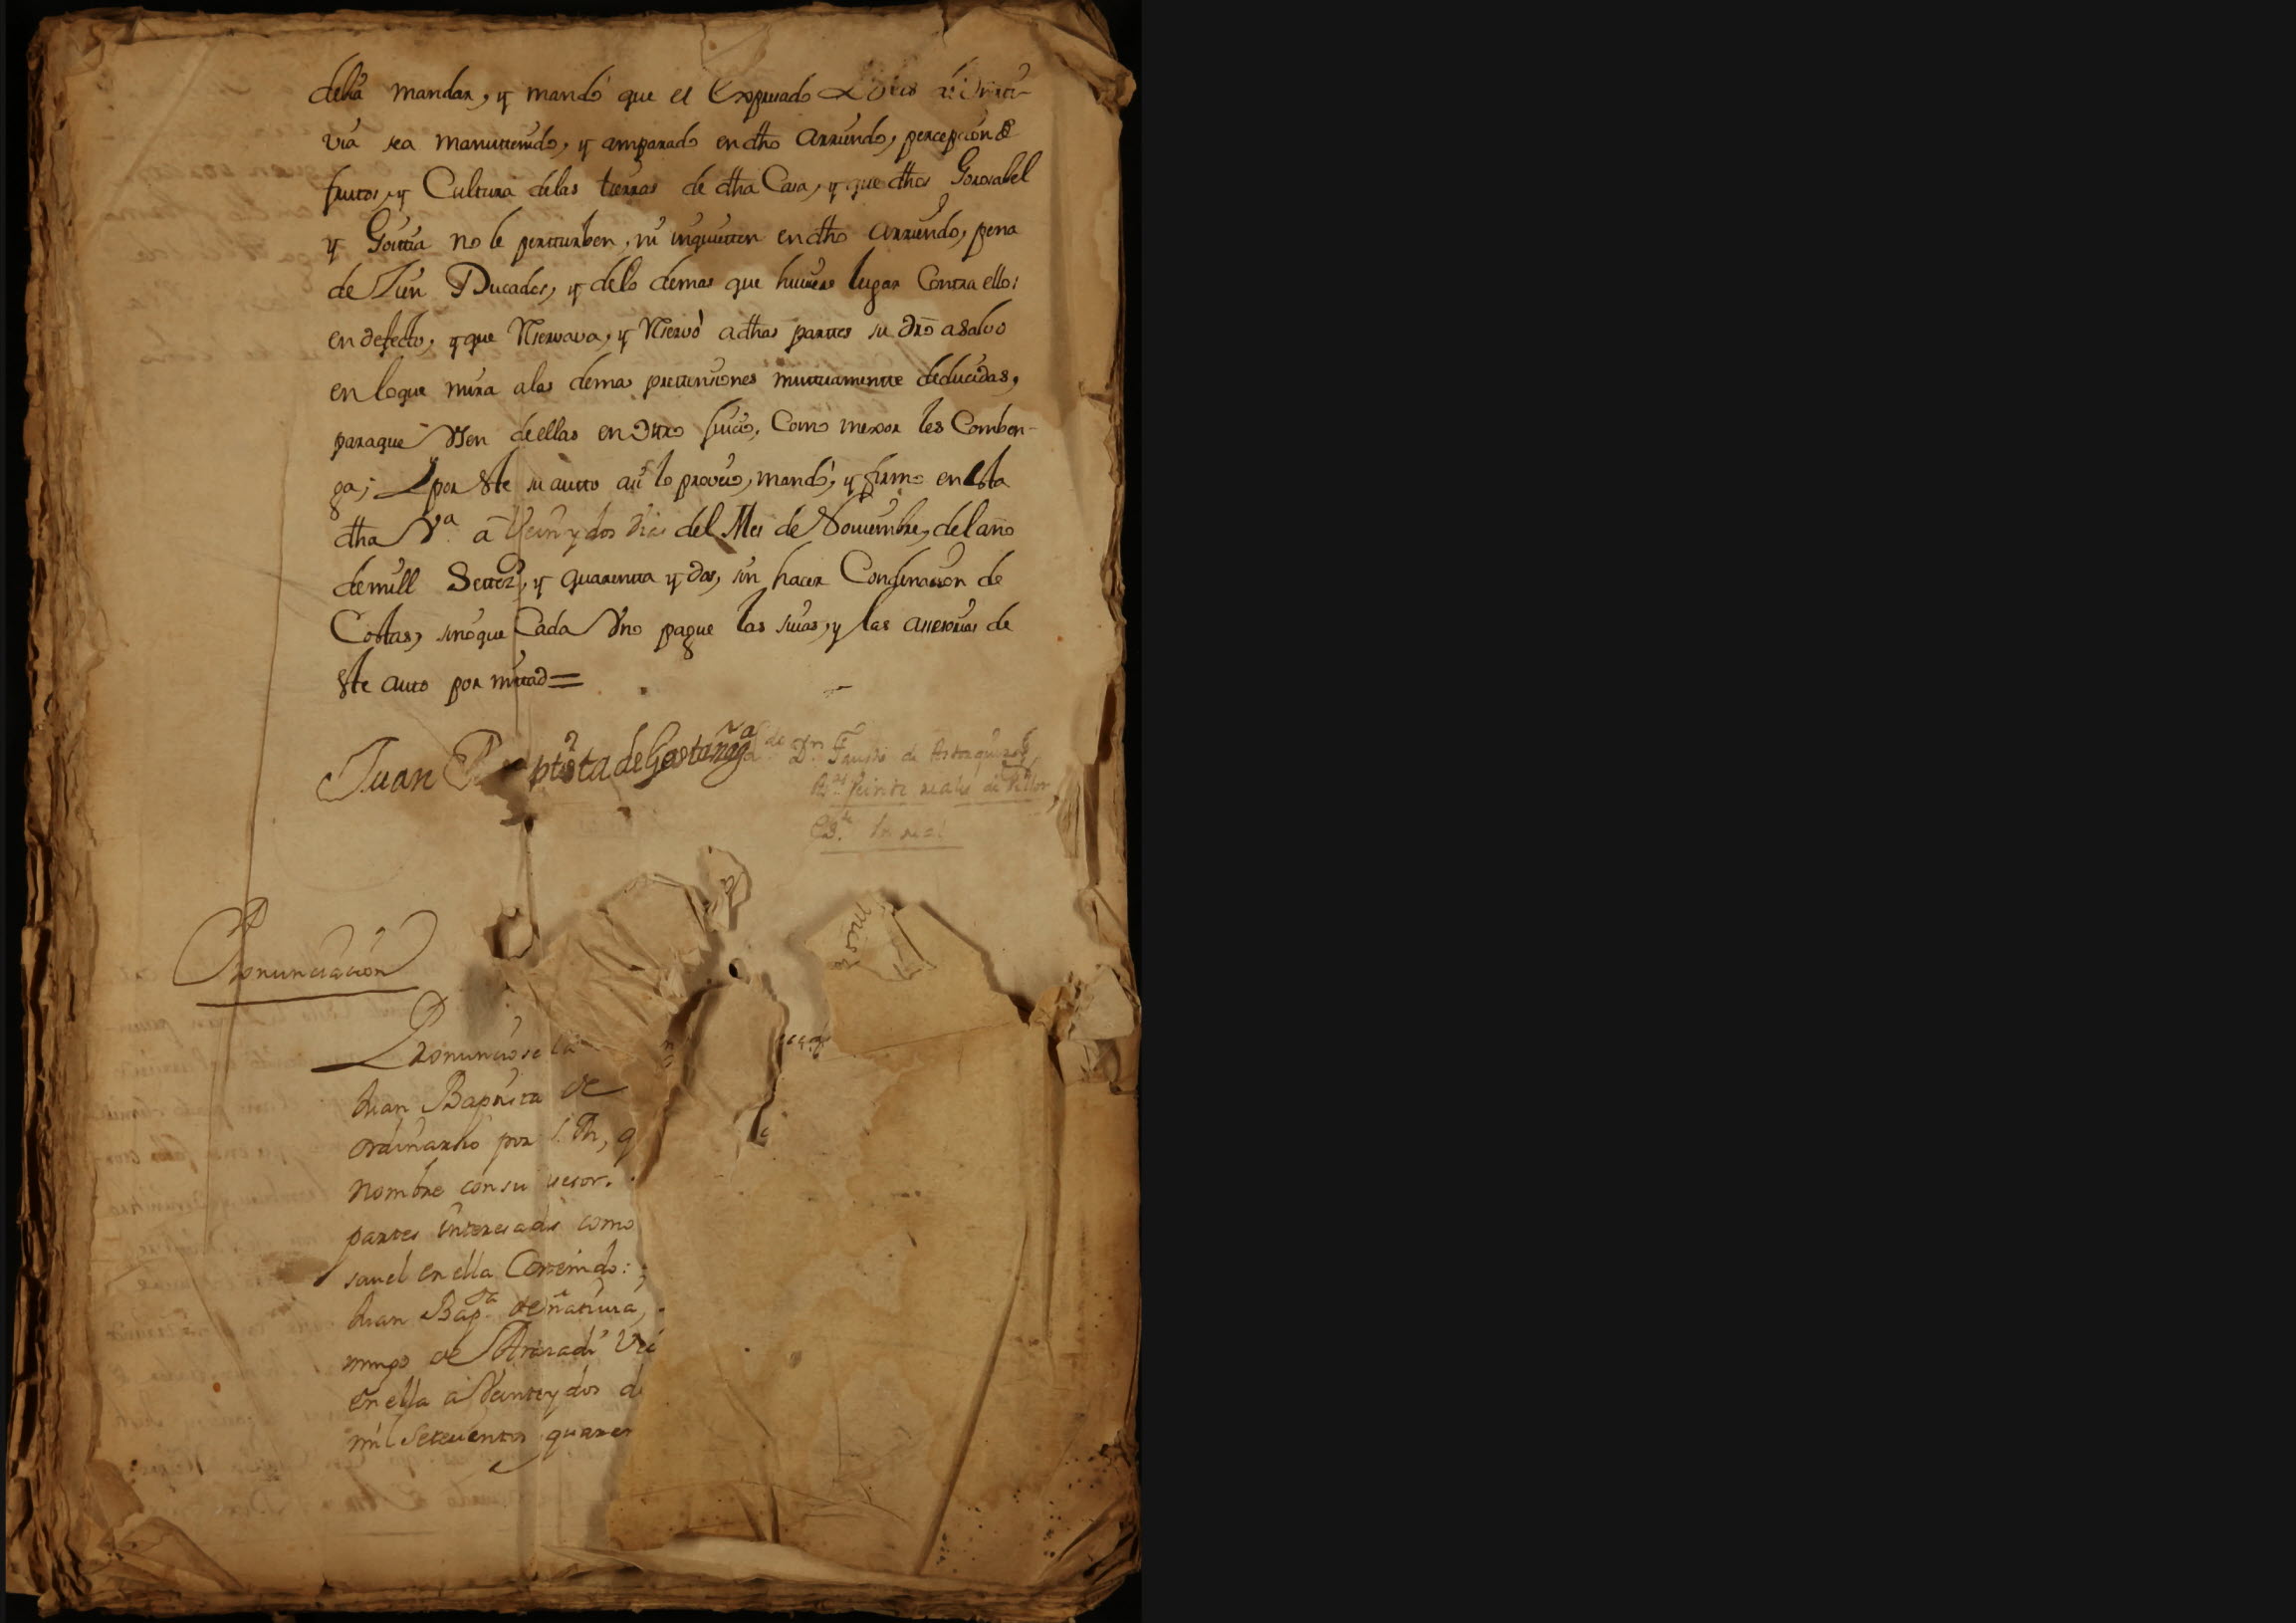 devia mandar, y mandó que el Expresado
via sea manuttenido, y amparado en dho Arriendo, percepcion de
fruttos, y Cultura delas tierras de dha Casa, y que dhos Gorosabel
y Goittia no le pertturben, ni inquietten en dho Arriendo, pena
de Zien Ducados, y delo demas que huuiere lugar Contra ellos
en defectto, y que Reservava, y Reservó adhas parttes su dro asalvo
en loque mira alas demas prettensiones muttuamentte deducidas,
paraque Usen deellas en Ottro Juicio, Como mexor les Comben-
ga; Y por Este su autto asi lo proveio, mandó, y firmo en Esta
dha Va. a Veinte y dos dias del Mes de Noviembre, del año
demill Settezs, y quarentta y dos, sin hacer Condenacion de
Costas, sinoque Cada Uno pague las suias, y las asesorias de
Este autto por mittad=
Juan Baptista de Gastañaga
Dn. Fausto de Astorquiza
veinte reales de Vellon,
Pronunciacion
Pronunciose la
Juan Baptista de
ordinario por S. M., q
nombre con su asesor.
partes interesadas como
savel en ella Contenido:
Juan Bapta. de
mingo de Arizadi Vec
en ella a Veinte y dos de
mil setecientos quaren